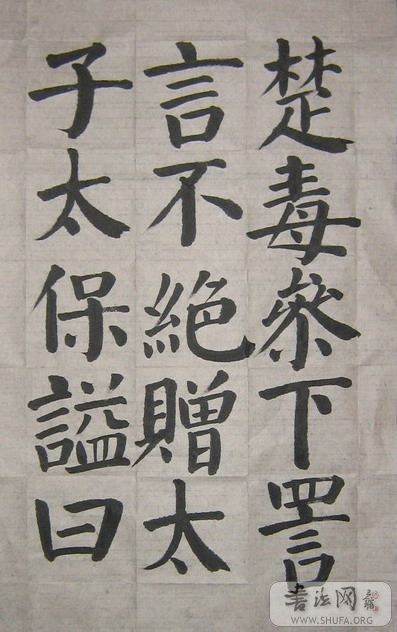 楚毒叅下詈
言不絶贈太
子太保謚曰
书法网
WWW.SHUFA.ORG